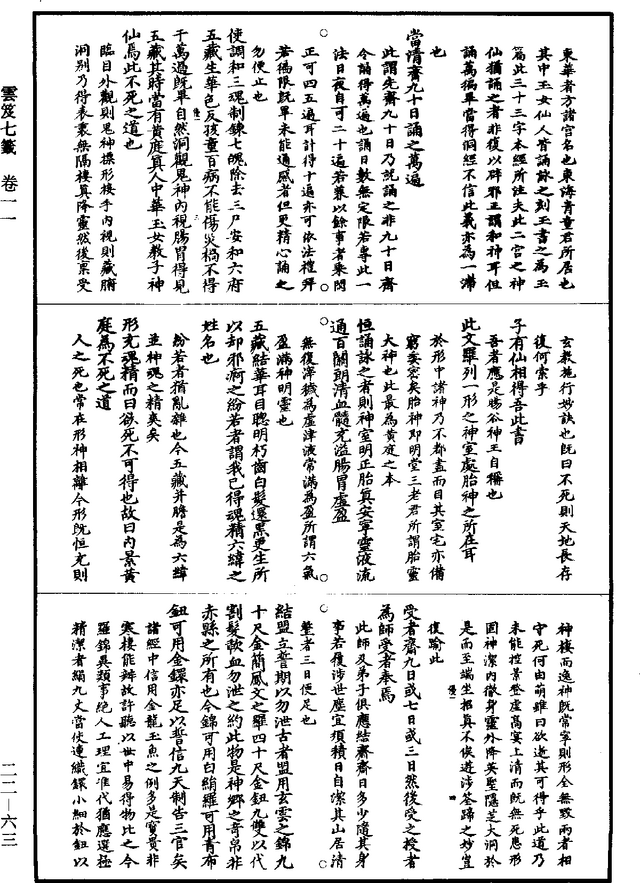 東華者方諸宮名也東海青童君所居也
其中玉女仙人皆誦詠之刻玉書之為玉
篇此三十三字本經所注夫此二宮之神
仙猶誦之者非復以辟邪正謂和神耳但
誦萬徧畢當得洞經不信此義亦為一滯
也
當清齋九十日誦之萬遍
此謂先齋九十日乃就誦之非九十日齋
令誦得萬遍也誦日數無定限若專此一
法日夜自可二十遍若兼以餘事者乘閑
正可四五遍耳計得十遍亦可依法禮拜
若徧限既畢未能通感者但更精心誦之
勿便止也
使調和三魂制鍊七魄除去三尸安和六府
五藏生華色反孩童百病不能傷災禍不得
千萬過既畢自然洞觀鬼神內視腸胃得見
五藏其時當有黃庭真人中華玉女教子神
仙焉此不死之道也
臨目外觀則鬼神摽形接手內視則藏腑
洞別乃得表裏無隔棲真降靈然後稟受
玄教施行妙訣也既曰不死則天地長存
復何索乎
子有仙相得吾此書
吾者應是暘谷神王自稱也
此文羅列一形之神室處胎神之所在耳
於形中諸神乃不都盡而目其室宅亦備
窮委密矣胎神即明堂三老君所謂胎靈
大神也此最為黃庭之本
恒誦詠之者則神室明正胎真安寧靈液流
通百關朗清血髓充溢腸胃虛盈
無復滓穢為虛津液常滿為盈所謂六氣
盈滿神明靈也
五藏結華耳目聰明朽齒白髮還黑更生所
以却邪痾之紛若者謂我已得魂精六緯之
姓名也
紛若者猶亂雜也今五藏并膽是為六緯
並神魂之精爽矣
形充魂精而曰欲死不可得也故曰內景黃
庭為不死之道
人之死也常在形神相離今形既恒充則
神棲而逸神既常寧則形全無毀兩者相
守死何由萌雖曰欲逝其可得乎此道乃
未能控景登虛高宴上清而既無死患形
固神潔內徹身靈外降英聖隱芝大洞於
是而至端坐招真不俟遊涉筌蹄之妙豈
復踰此
受者齋九日或七日或三日然後受之授者
為師受者奉焉
此師及弟子俱應結齋齋日多少隨其身
事若履涉世塵宜須積日自潔其山居清
整者三日便足也
結盟立誓期以勿泄古者盟用玄雲之錦九
十尺金簡鳳文之羅四十尺金鈕九雙以代
割髮歃血勿泄之約此物是神鄉之奇帛非
赤縣之所有也今錦可用白絹羅可用青布
鈕可用金鐶亦足以誓信九天制告三官矣
諸經中信用金龍玉魚之例多是寶貴非
寒棲能辦故許聽以世中易得物比之今
羅錦異類事絕人工理宜准代猶應選極
精潔者絹九丈當使連織鐶小細於鈕以
雲笈七籤 卷一一
二二—六三